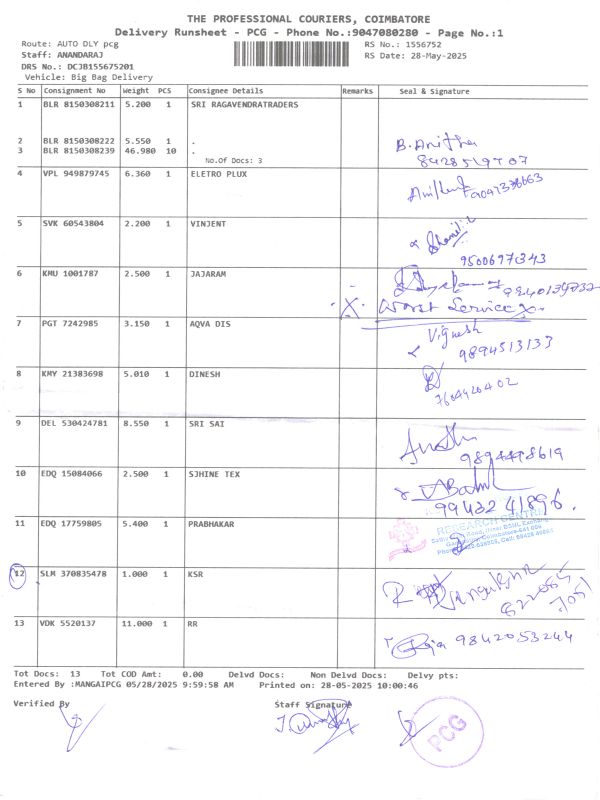 THE PROFESSIONAL COURIERS, COIMBATORE
Delivery Runsheet - PCG - Phone No.:9047080280 - Page No.:1
Route: AUTO DLY pcg
RS No.: 1556752
Staff: ANANDARAJ
RS Date: 28-May-2025
DRS No.: DCJB155675201
Vehicle: Big Bag Delivery
S No Consignment No Weight PCS Consignee Details Remarks Seal & Signature
1 BLR 8150308211 5.200 1 SRI RAGAVENDRATRADERS
2 BLR 8150308222 5.550 1 . B. Anitha
3 BLR 8150308239 46.980 10 .
No.Of Docs: 3
4 VPL 949879745 6.360 1 ELETRO PLUX
5 SVK 60543804 2.200 1 VINJENT
9500697343
6 KMU 1001787 2.500 1 JAJARAM
X. Worst Service X.
7 PGT 7242985 3.150 1 AQVA DIS Vignesh
9894513133
8 KMY 21383698 5.010 1 DINESH
7604420402
9 DEL 530424781 8.550 1 SRI SAI
9894498619
10 EDQ 15084066 2.500 1 SJHINE TEX
99432 41896.
11 EDQ 17759805 5.400 1 PRABHAKAR
RESEARCH CENTRE
12 SLM 370835478 1.000 1 KSR
13 VDK 5520137 11.000 1 RR
Raja 9842053244
Tot Docs: 13 Tot COD Amt: 0.00 Delvd Docs: Non Delvd Docs: Delvy pts:
Entered By :MANGAIPCG 05/28/2025 9:59:58 AM Printed on: 28-05-2025 10:00:46
Verified By Staff Signature
PCG